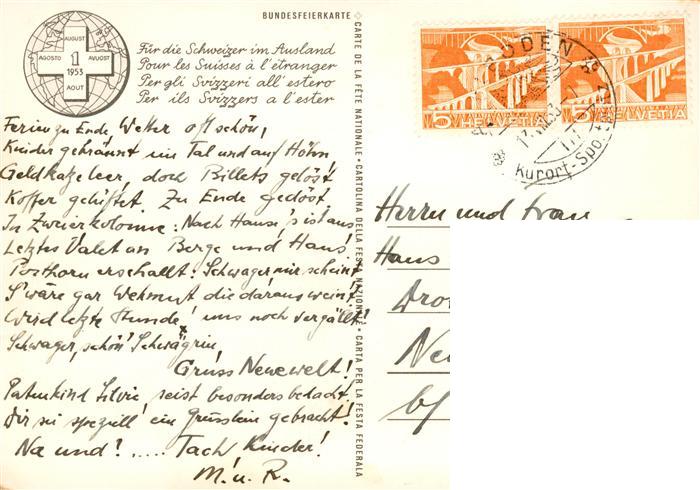 BUNDESFEIERKARTE
AUGUST
AGOSTO 1 AVUOST
1953
AOUT
Für die Schweizer im Ausland
Pour les Suisses à l'étranger
Per gli Svizzeri all'estero
Per ils Svizzers a l'ester
CARTE DE LA FÊTE NATIONALE · CARTOLINA DELLA FESTA NAZIONALE · CARTA PER LA FESTA FEDERALA
Ferien zu Ende, Wetter oft schön,
Kinder gebräunt im Tal und auf Höhn,
Geldkatze leer, doch Billets gelöst
Koffer gelüftet Zu Ende gedöst
In Zweierkolonne: Nach Hause, 's ist aus
Letztes Valet an Berge und Haus!
Posthorn erschallt! Schwager mir scheint
S'wäre gar Wehmut die daraus weint!
Wird letzte Stunde! uns noch vergällt?
Schwager, schön! Schwägrin,
Gruss Neuewelt!
Patenkind Silvie, seist besonders bedacht
Dir sei speziell ein Grüsslein gebracht!
Na und? ..... Tach Kinder!
M. u. R.
5 HELVETIA
5 HELVETIA
Kurort-Spo
Herrn und Frau
Hans